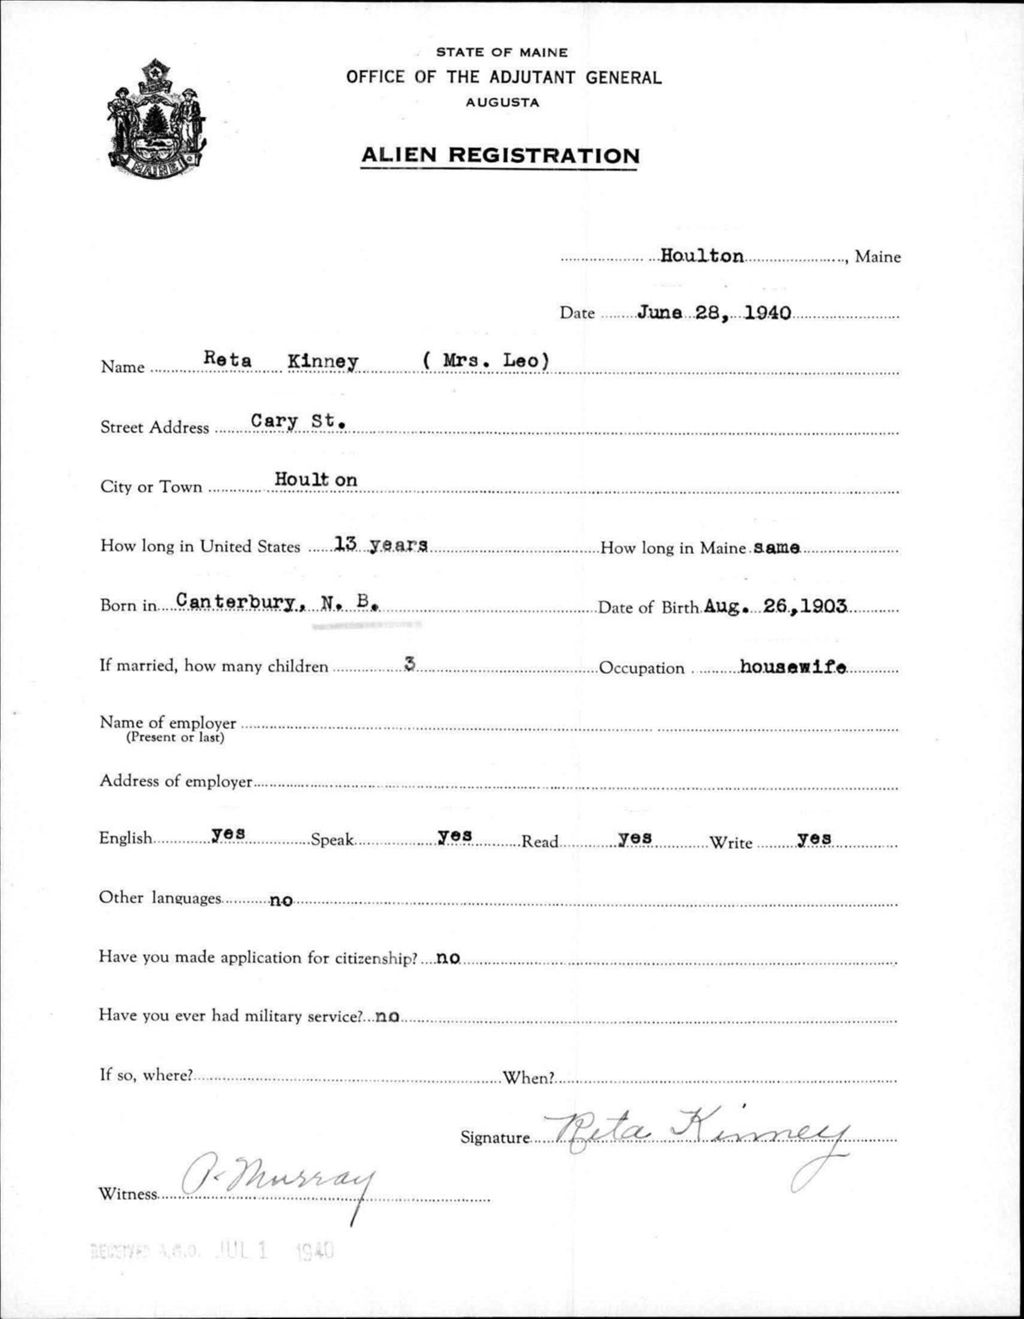 STATE OF MAINE
OFFICE OF THE ADJUTANT GENERAL
AUGUSTA
ALIEN REGISTRATION
MAINE
Houlton, Maine
Date June 28, 1940
Name Reta Kinney ( Mrs. Leo)
Street Address Cary St.
City or Town Houlton
How long in United States 13 years How long in Maine same
Born in Canterbury, N. B. Date of Birth Aug. 26, 1903
If married, how many children 3 Occupation housewife
Name of employer
(Present or last)
Address of employer
English yes Speak yes Read yes Write yes
Other languages no
Have you made application for citizenship? no
Have you ever had military service? no
If so, where? When?
Signature Reta Kinney
Witness P. Murray
RECEIVED A.G.O. JUL 1 1940